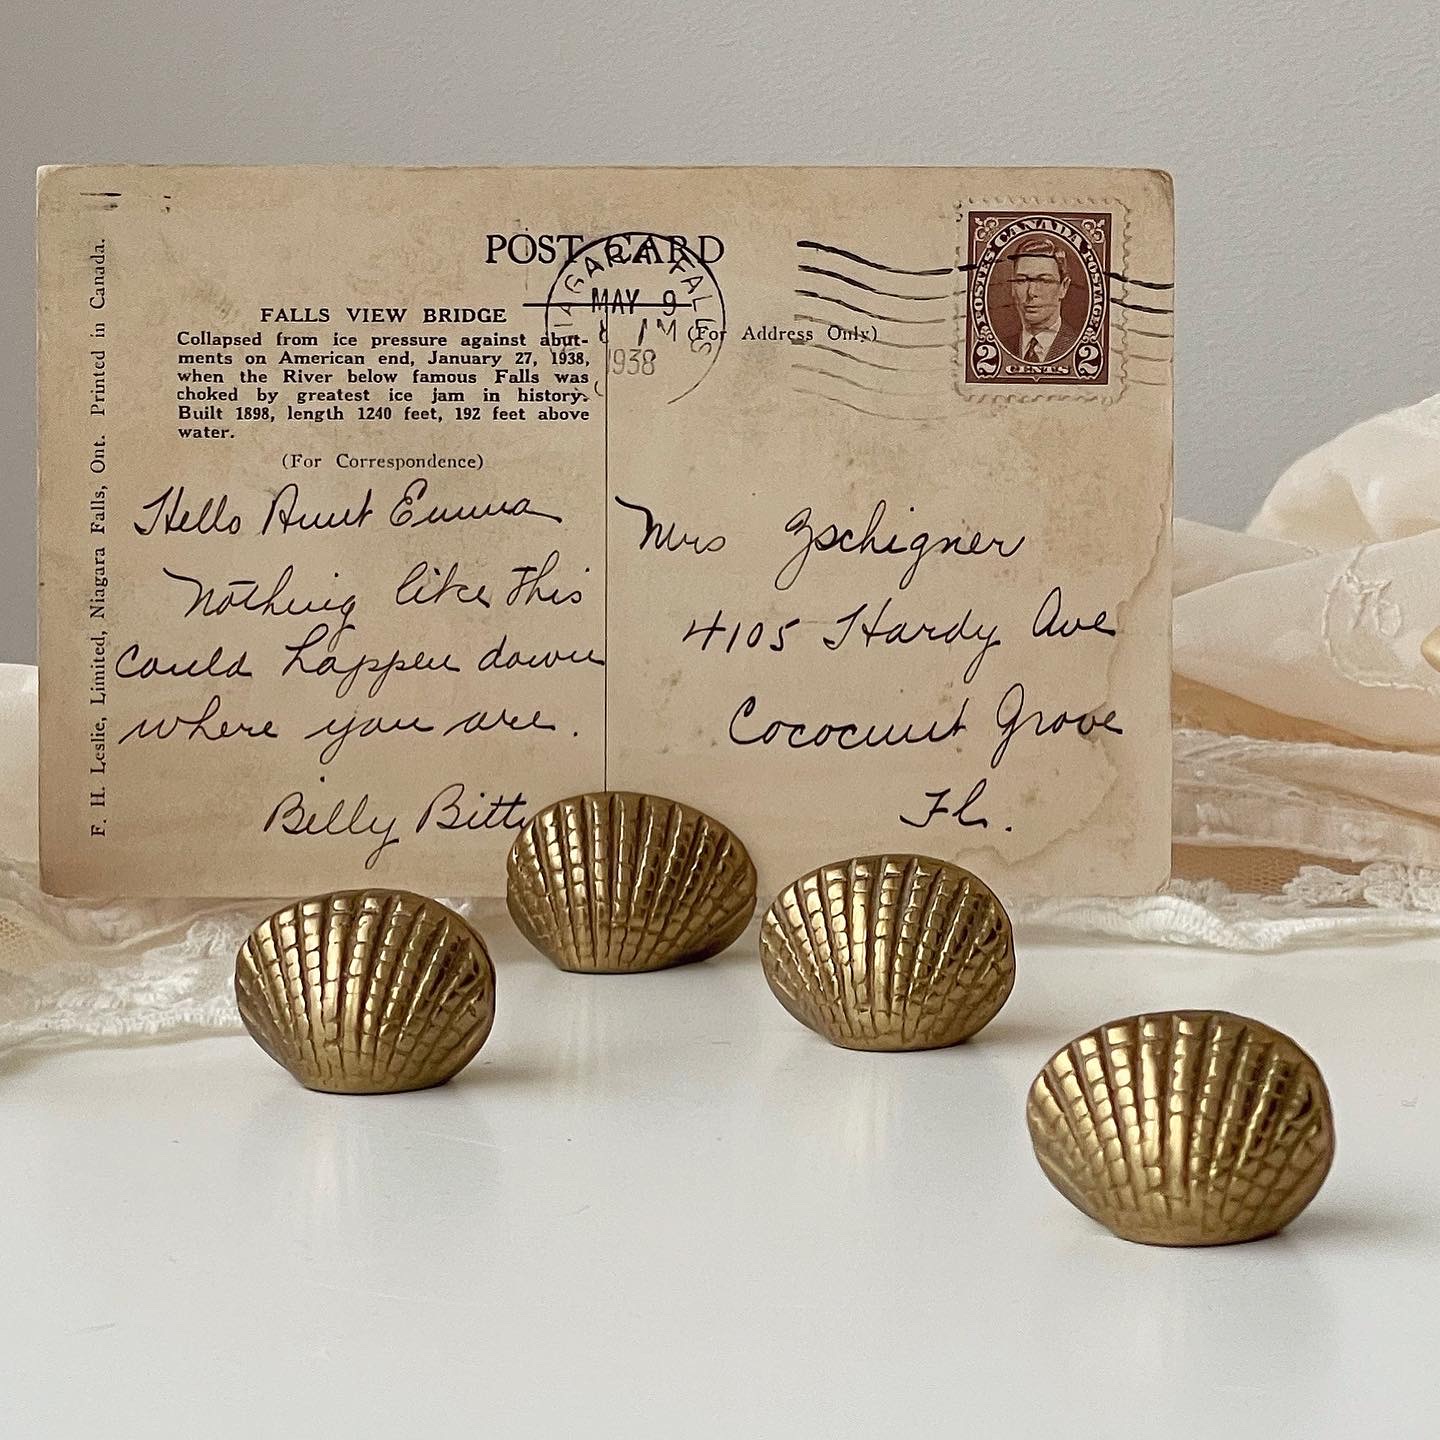 POST CARD
NIAGARA FALLS
MAY 9
1938
CANADA
POSTES POSTAGE
2 2
CENTS
(For Address Only)
FALLS VIEW BRIDGE
Collapsed from ice pressure against abut-
ments on American end, January 27, 1938,
when the River below famous Falls was
choked by greatest ice jam in history.
Built 1898, length 1240 feet, 192 feet above
water.
(For Correspondence)
Hello Aunt Emma
Nothing like this
could happen down
where you are.
Billy Bitty
Mrs Zschigner
4105 Hardy Ave
Cococunut Grove
Fl.
F. H. Leslie, Limited, Niagara Falls, Ont. Printed in Canada.